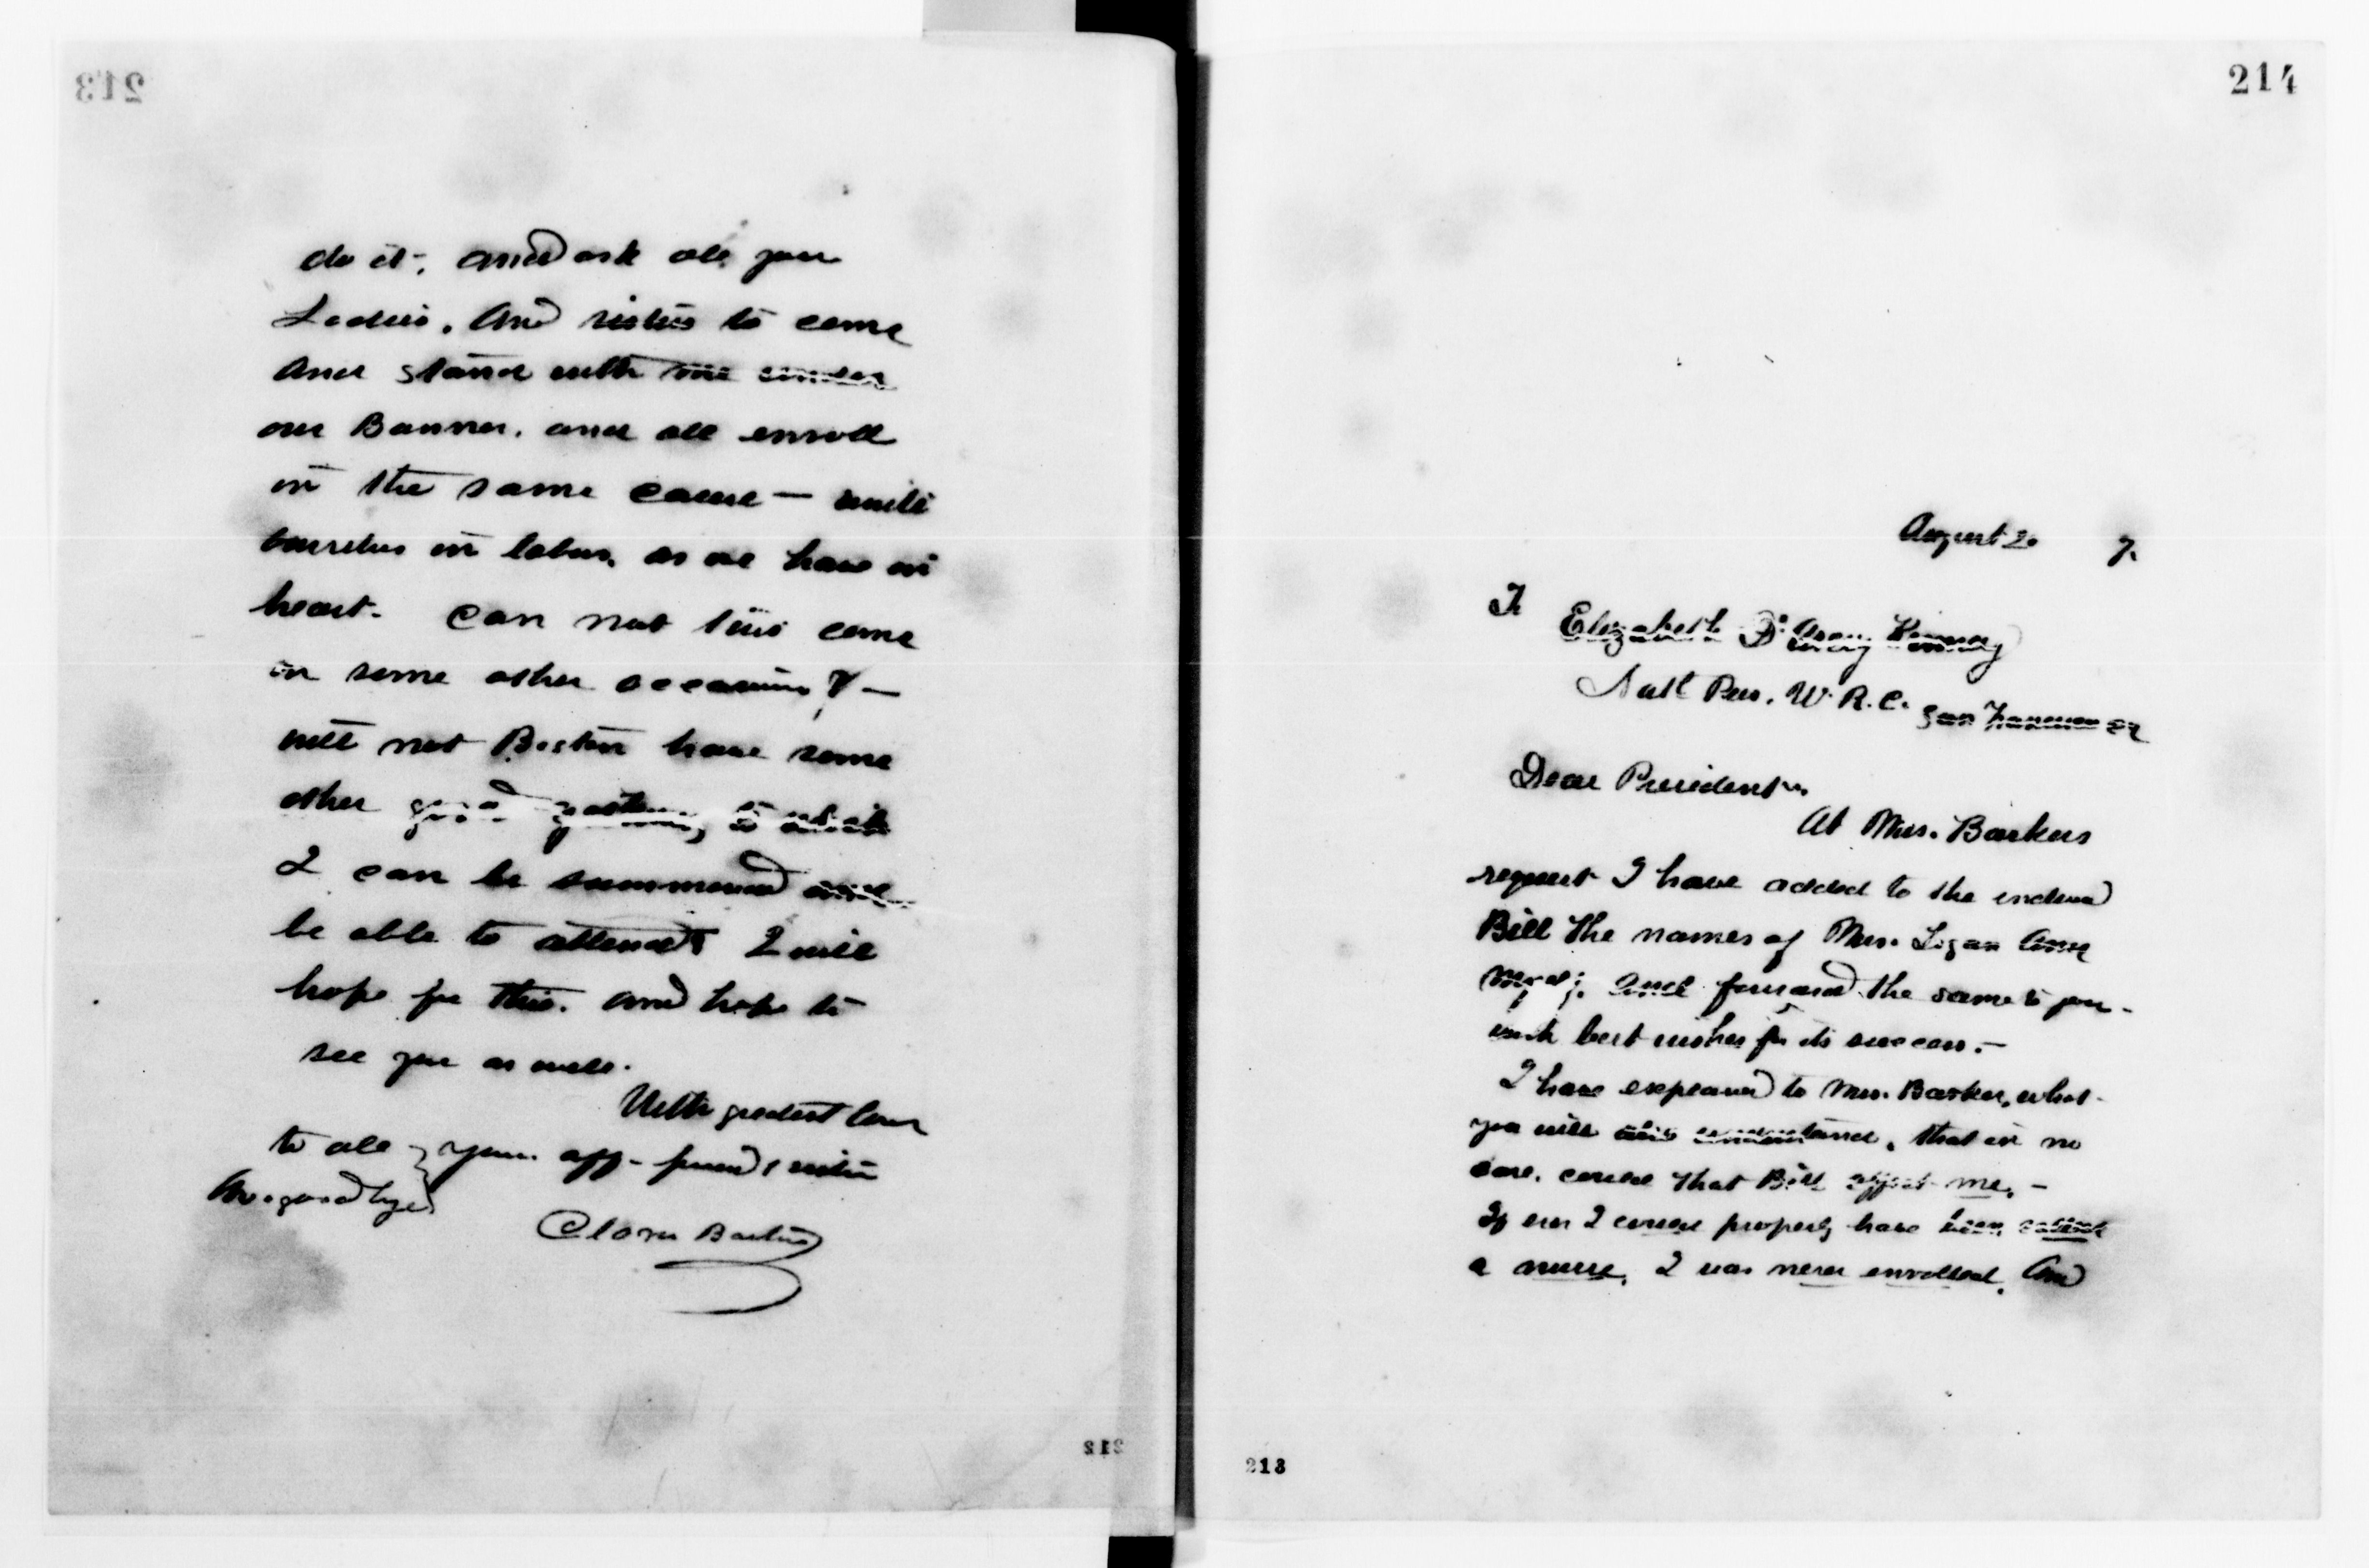 213
do it, and ask all you
Ladies, and sisters to come
and stand with me under
our Banner, and all enroll
in the same cause — unite
ourselves in labor, as we have in
heart. Can not this come
in some other occasion? —
will not Boston have some
other good gathering to which
I can be summoned and
be able to attend? I will
hope for this. and hope to
see you as well.
With greatest love
to all your aff - friend & sister
& good bye
Clara Barton
212
214
August 20 7.
To
Elizabeth D'Arcy Kinney
Natl Pres. W. R. C. San Francisco
Dear President.
At Mrs. Barkers
request I have added to the enclosed
Bill the names of Mrs. Logan and
myself; and forward the same to you -
with best wishes for its success. —
I have explained to Mrs. Barker, what
you will also understand, that in no
case, could that Bill affect me, —
If ever I could properly have been called
a nurse, I was never enrolled. And
213